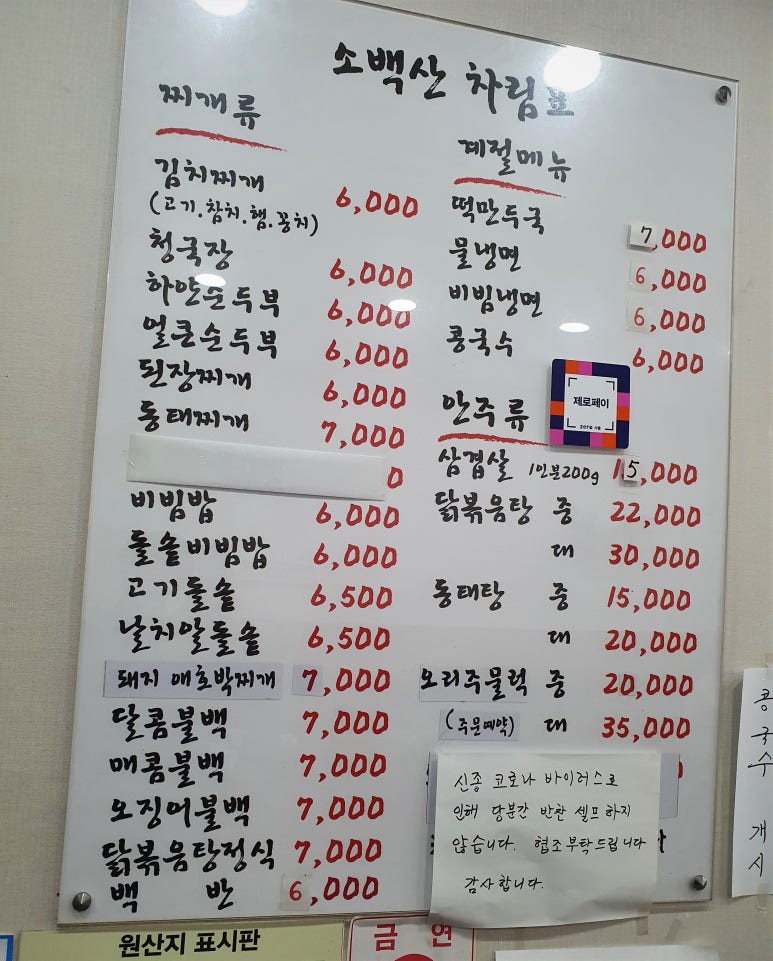 소백산 차림표
찌개류
김치찌개 6,000
(고기.참치.햄.꽁치)
청국장 6,000
하얀순두부 6,000
얼큰순두부 6,000
된장찌개 6,000
동태찌개 7,000
0
비빔밥 6,000
돌솥비빔밥 6,000
고기돌솥 6,500
날치알돌솥 6,500
돼지 애호박찌개 7,000
달콤불백 7,000
매콤불백 7,000
오징어불백 7,000
닭볶음탕정식 7,000
백반 6,000
계절메뉴
떡만두국 7,000
물냉면 6,000
비빔냉면 6,000
콩국수 6,000
제로페이
zero 서울
안주류
삼겹살 1인분200g 15,000
닭볶음탕 중 22,000
대 30,000
동태탕 중 15,000
대 20,000
오리주물럭 중 20,000
(주문예약) 대 35,000
신종 코로나 바이러스로
인해 당분간 반찬 셀프 하지
않습니다. 협조부탁드립니다
감사합니다.
콩국수 개시
원산지 표시판
금연